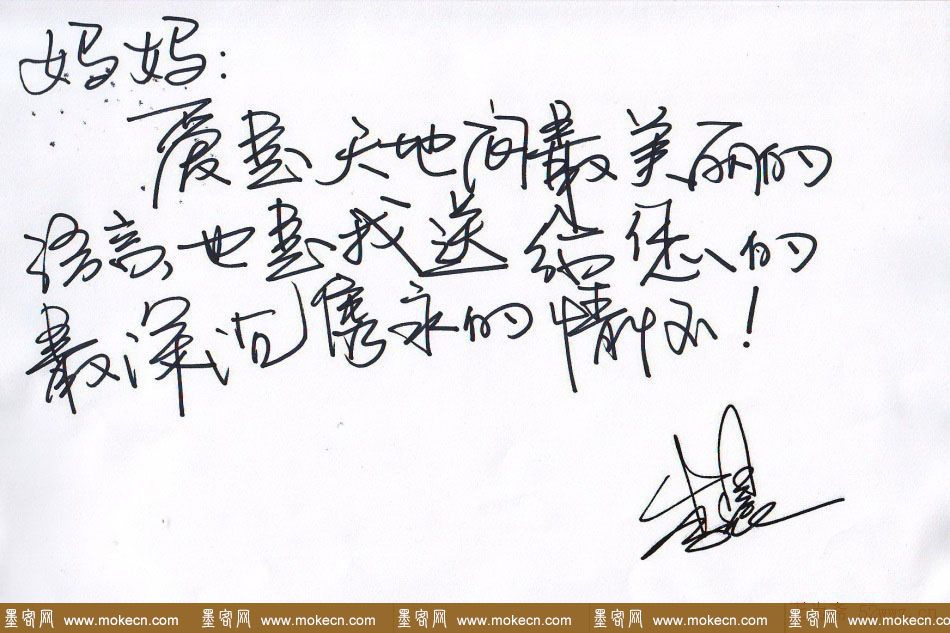 妈妈：
爱是天地间最美丽的
语言，也是我送给您的
最深沉隽永的情怀！
墨客网 www.mokecn.com 墨客网 www.mokecn.com 墨客网 www.mokecn.com 墨客网 www.mokecn.com 墨客网 www.mokecn.co